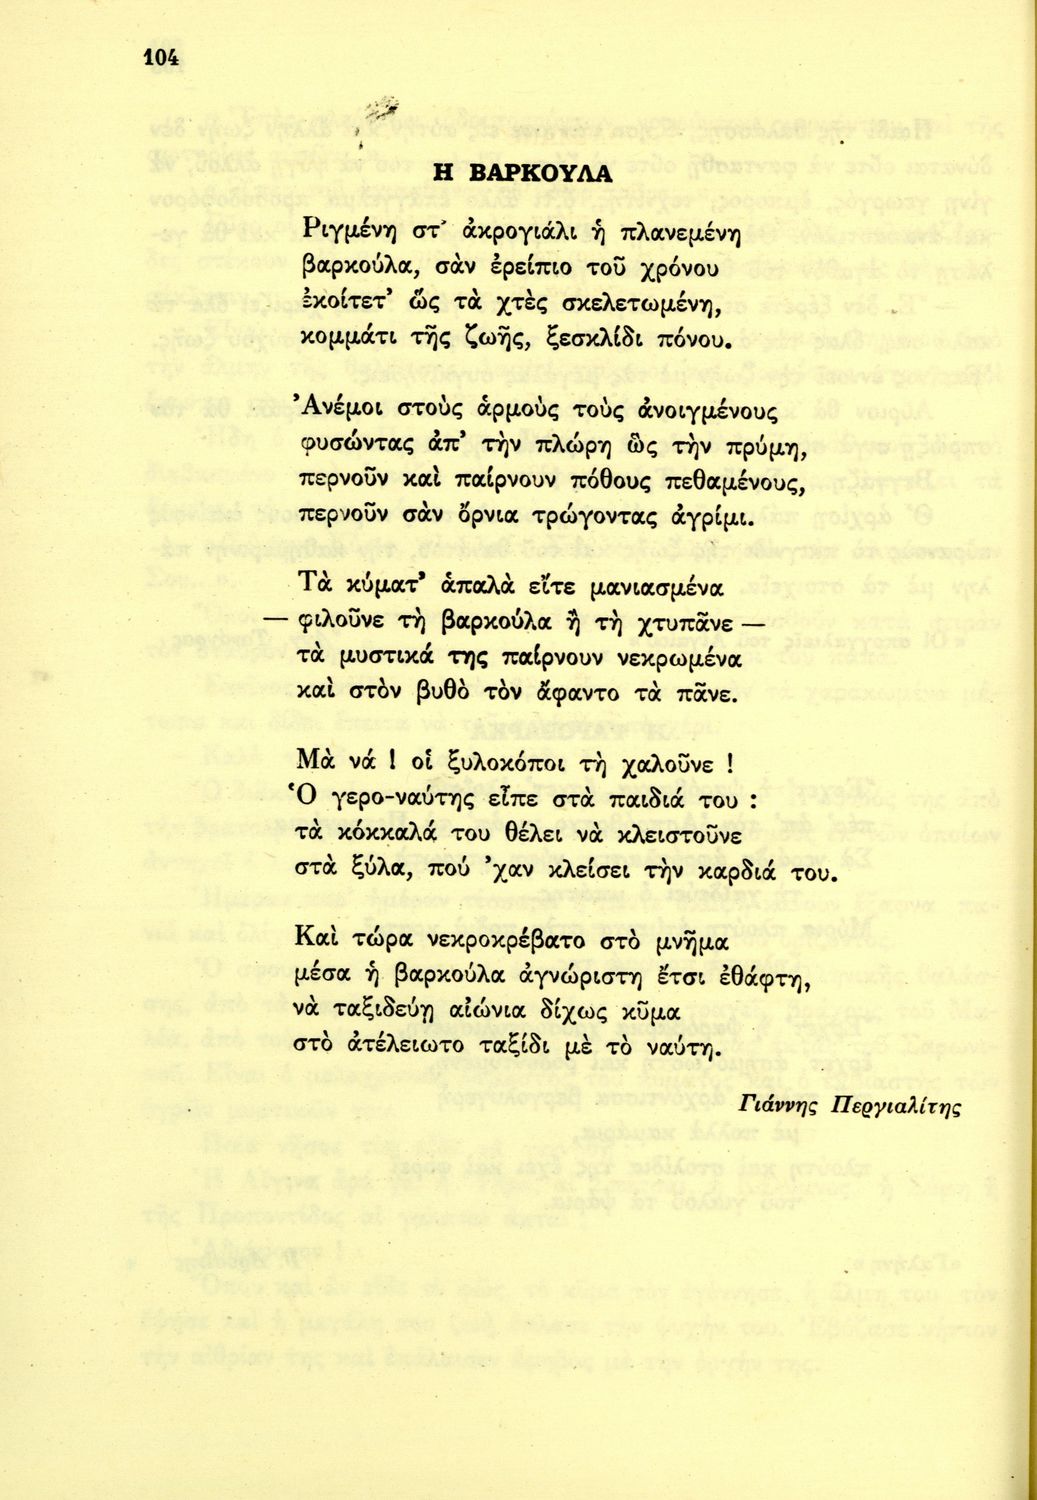 104
Η ΒΑΡΚΟΥΛΑ
Ριγμένη στ' ἀκρογιάλι ἡ πλανεμένη
βαρκούλα, σὰν ἐρείπιο τοῦ χρόνου
ἐκοίτετ' ὣς τὰ χτὲς σκελετωμένη,
κομμάτι τῆς ζωῆς, ξεσκλίδι πόνου.
Ἀνέμοι στοὺς ἁρμοὺς τοὺς ἀνοιγμένους
φυσώντας ἀπ' τὴν πλώρη ὣς τὴν πρύμη,
περνοῦν καὶ παίρνουν πόθους πεθαμένους,
περνοῦν σὰν ὄρνια τρώγοντας ἀγρίμι.
Τὰ κύματ' ἁπαλὰ εἴτε μανιασμένα
— φιλοῦνε τὴ βαρκούλα ἢ τὴ χτυπᾶνε —
τὰ μυστικά της παίρνουν νεκρωμένα
καὶ στὸν βυθὸ τὸν ἄφαντο τὰ πᾶνε.
Μὰ νά ! οἱ ξυλοκόποι τὴ χαλοῦνε !
Ὁ γερο-ναύτης εἶπε στὰ παιδιά του :
τὰ κόκκαλά του θέλει νὰ κλειστοῦνε
στὰ ξύλα, πού 'χαν κλείσει τὴν καρδιά του.
Καὶ τώρα νεκροκρέβατο στὸ μνῆμα
μέσα ἡ βαρκούλα ἀγνώριστη ἔτσι ἐθάφτη,
νὰ ταξιδεύῃ αἰώνια δίχως κῦμα
στὸ ἀτέλειωτο ταξίδι μὲ τὸ ναύτη.
Γιάννης Περγιαλίτης